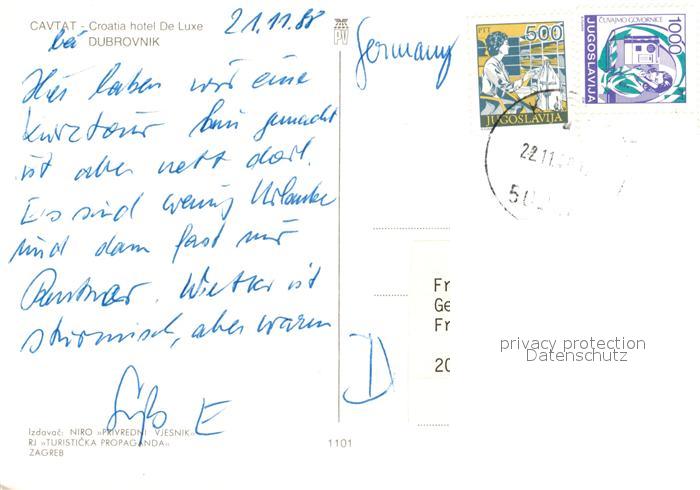 CAVTAT - Croatia hotel De Luxe
bei DUBROVNIK
21.11.88
Hier haben wir eine
Kurztour hin gemacht
ist aber nett dort.
Es sind wenig Urlauber
und dann fast nur
Rentner. Wetter ist
stürmisch, aber warm
Gruß E
Izdavač: NIRO »PRIVREDNI VJESNIK«
RJ »TURISTIČKA PROPAGANDA«
ZAGREB
1101
Germany
D
PTT 500
JUGOSLAVIJA
ČUVAJMO GOVORNICE
1000
JUGOSLAVIJA
22.11.
Fr
Ge
Fr
20
privacy protection
Datenschutz